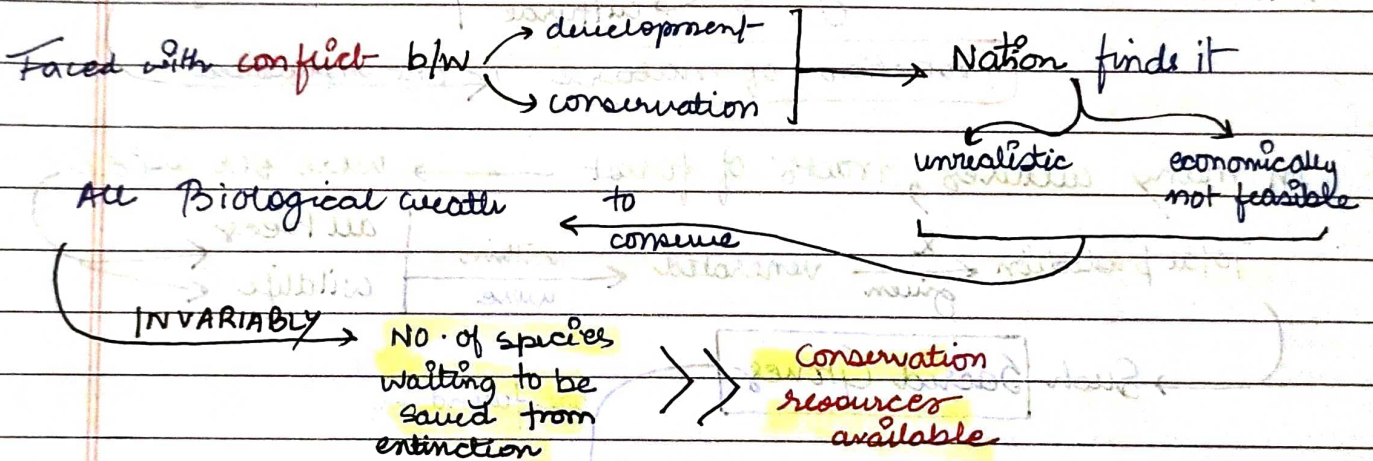 Faced with conflict b/w
development
conservation
Nation finds it
unrealistic
economically
not feasible
All Biological wealth to
conserve
INVARIABLY
NO. of species
waiting to be
saved from
extinction
>>
Conservation
resources
available